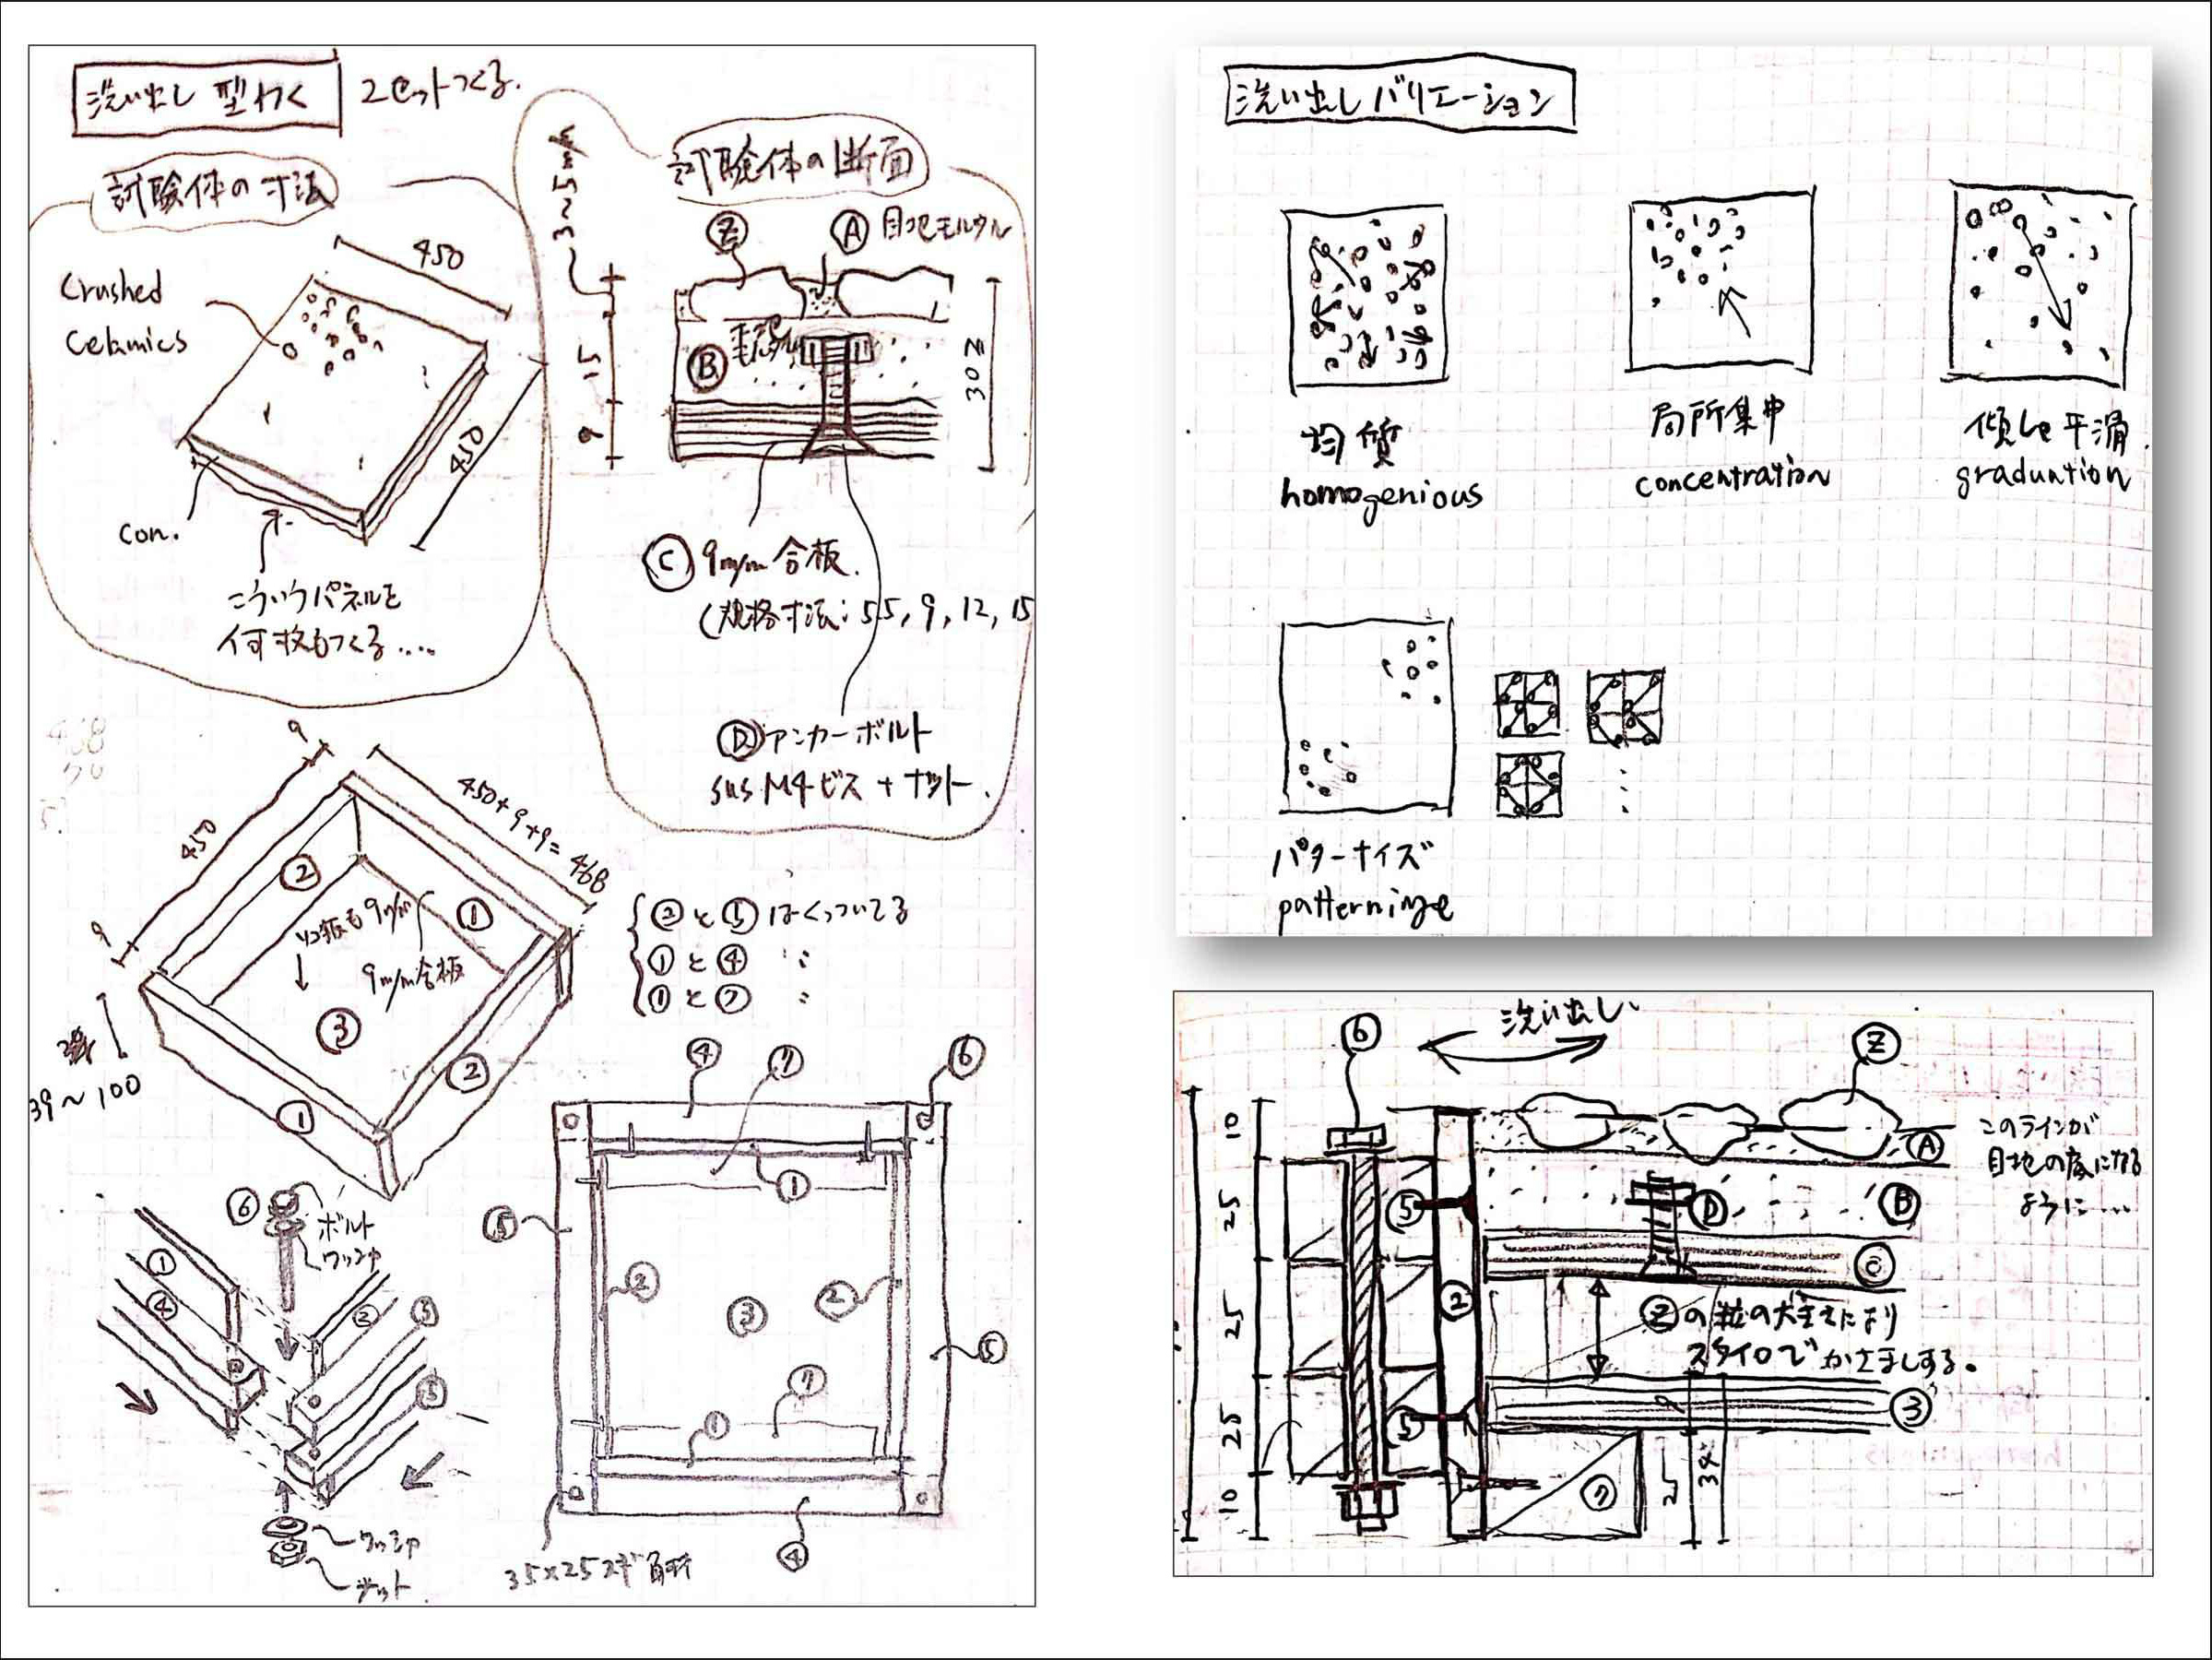 洗い出し 型わく
2セットつくる.
試験体の寸法
450
Crushed
Celamics
450
con.
こういうパネルを
何枚もつくる....
試験体の断面
3~5
Z
A 目地モルタル
B
15
9
30
C 9m/m 合板.
(規格寸法: 5.5, 9, 12, 15
D アンカーボルト
SUS M4ビス+ナット.
9
450
9
450+9+9=468
2
1
ソコ板も9m/m
9m/m合板
3
2
1
39~100
②と⑤はくっついてる
①と④ 〃
①と⑦ 〃
6
ボルト
ワッシャ
1
4
2
5
5
ワッシャ
ナット
4
7
6
1
5
2
3
2
5
7
1
4
35×25スギ角材
洗い出しバリエーション
均質
homogenious
局所集中
concentration
傾しゃ平滑
graduation
パターナイズ
patterninze
洗い出し
6
Z
10
25
25
25
10
A
このラインが
目地の底になる
ように....
5
D
B
C
2
Zの粒の大きさにより
スタイロでかさましする。
3
5
9
7
25
34